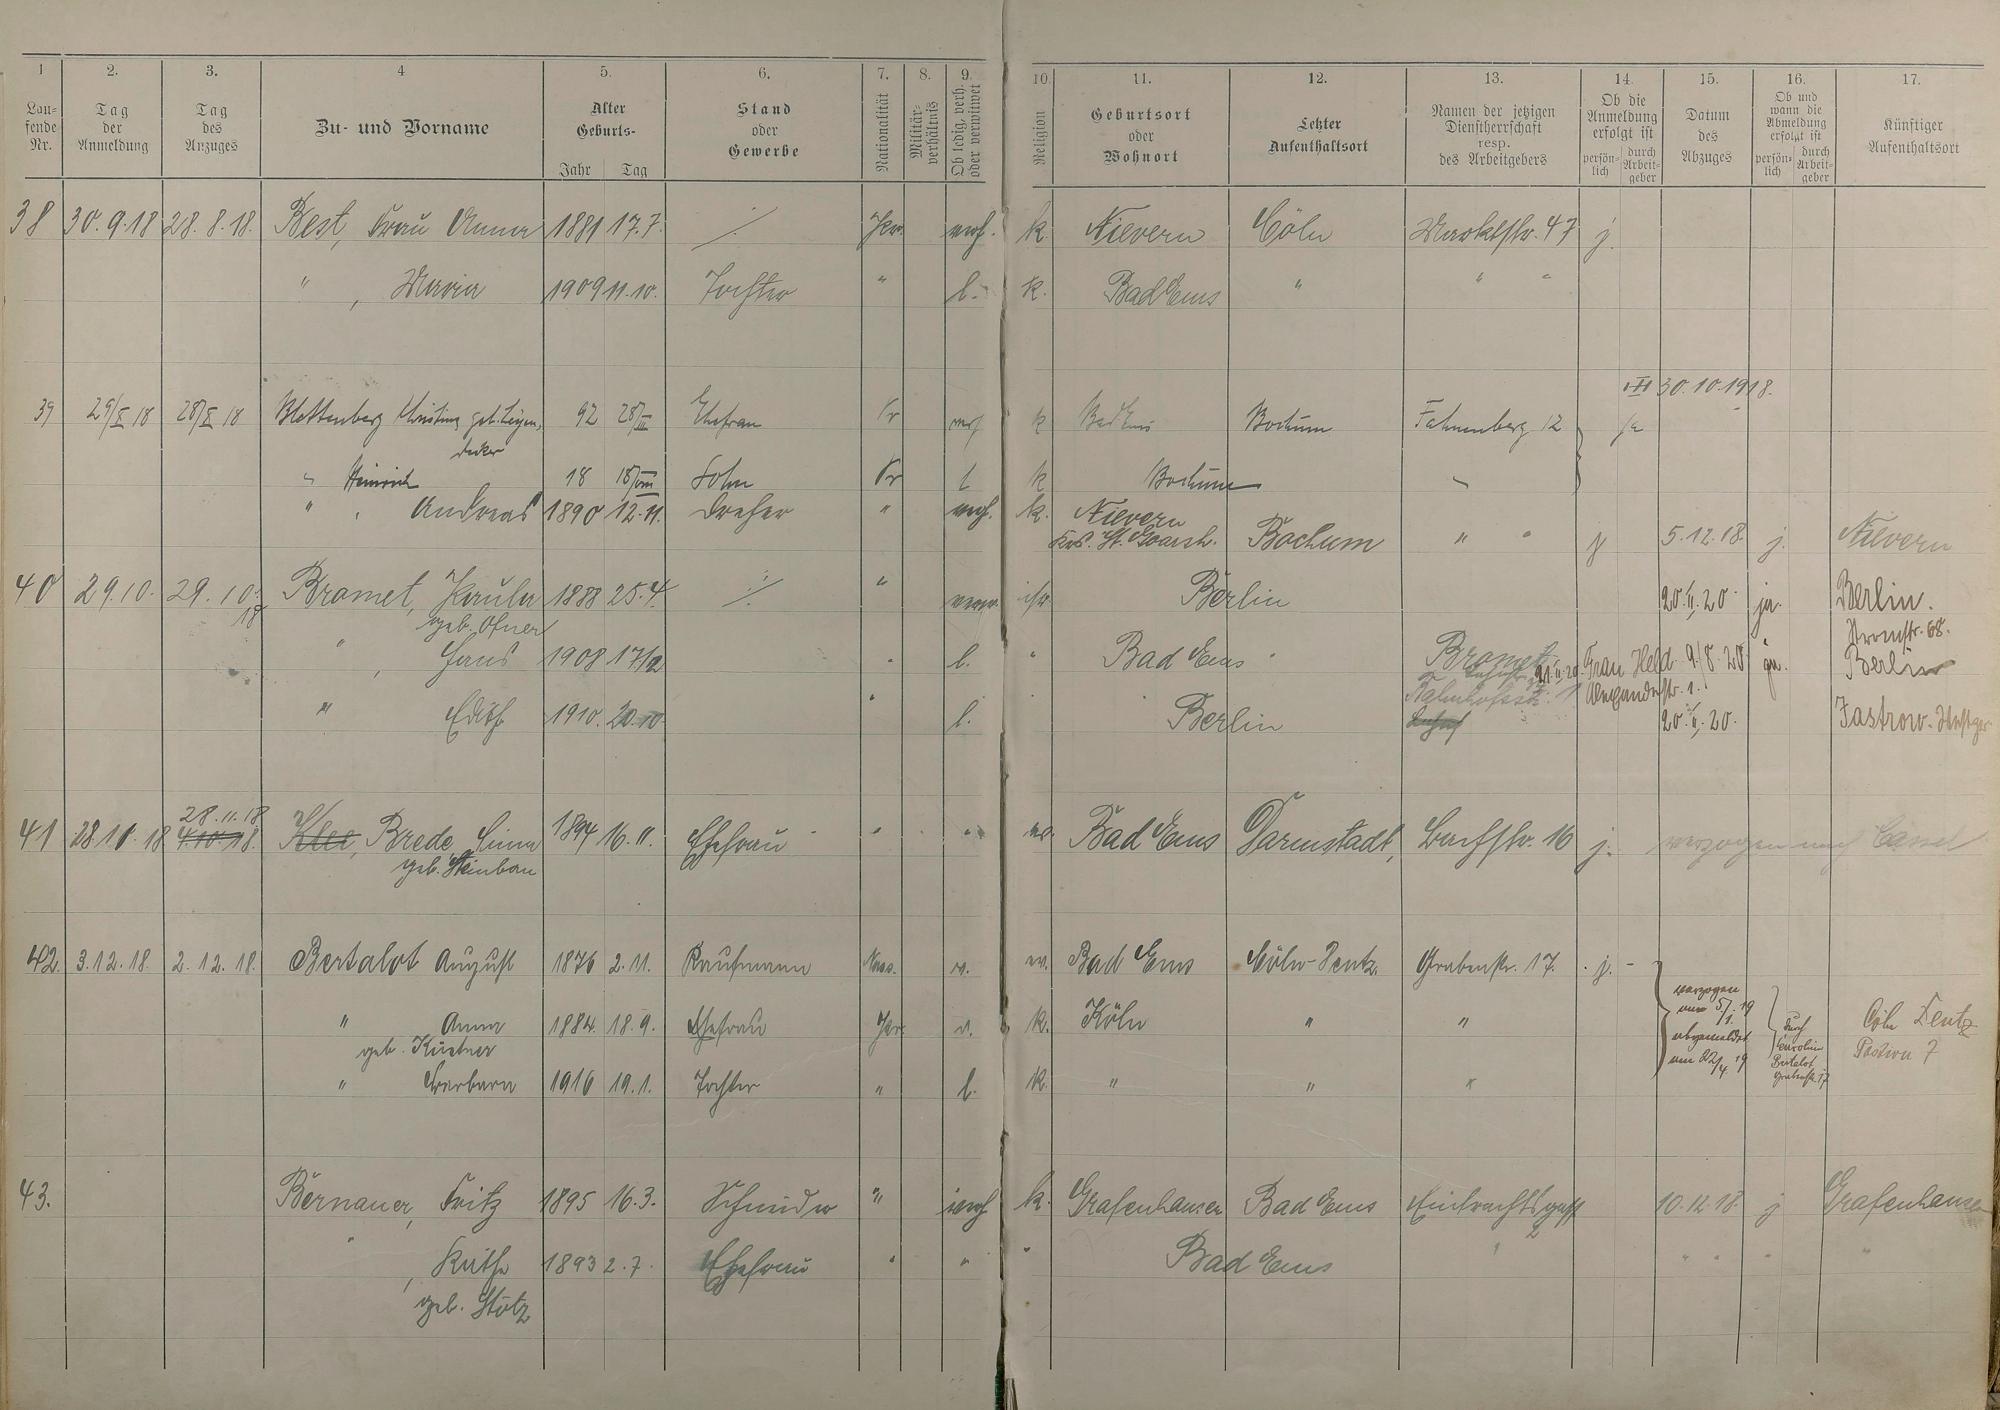 1 2. 3. 4 5. 6. 7. 8. 9. 10 11. 12. 13. 14. 15. 16. 17.
Laufende Nr.
Tag der Anmeldung
Tag des Anzuges
Zu- und Vorname
Alter
Geburts-
Jahr Tag
Stand oder Gewerbe
Nationalität
Militärverhältnis
Ob ledig, verh. oder verwitwet
Religion
Geburtsort oder Wohnort
Letzter Aufenthaltsort
Namen der jetzigen Dienstherrschaft resp. des Arbeitgebers
Ob die Anmeldung erfolgt ist
persönlich durch Arbeitgeber
Datum des Abzuges
Ob und wann die Abmeldung erfolgt ist
persönlich durch Arbeitgeber
Künftiger Aufenthaltsort
38 30.9.18 28.8.18. Best, Frau Anna 1881 17.7. verh. k. Nievern Cöln Marktstr. 47 j.
" , Maria 1909 11.10. Tochter " l. k. Bad Ems " " "
30.10.1918.
39 29/X 18 28/X 18 geb. Leyen- 92 28/III Ehefrau Pr k Bad Ems Bochum Fahnenberg 12 ja
decker
" Heinrich 18 18/VIII Sohn Pr l k Bochum "
" , Andreas 1890 12.11. Dreher " verh. k. Nievern
Krs. St. Goarsh. Bochum " " j 5.12.18. j. Nievern
40 29.10. 29.10. 18 Bramet, Paula 1888 25.4. " isr Berlin 20.II.20 ja. Berlin.
geb. Ofner
" , Hans 1908 17/2 " l. " Bad Ems " Bramet 21.II.20. Frau Held 9/8.20 ja. Berlin
Bahnhofstr. 1 Alexanderstr. 1.
" Edith 1910. 20.10 " l. Berlin 20.II.20. Jastrow
28.11.18
41 28.11.18 4.10.18. Klee, Brede, 1894 16.11. Ehefrau " " Bad Ems Darmstadt, Bachstr. 16 j. verzogen nach Cassel
geb. Steinbau
42. 3.12.18. 2.12.18. Bertalot August 1876 2.11. Kaufmann v. ev. Bad Ems Cöln-Deutz. Grabenstr. 17. j.
" Anna 1884. 18.9. Ehefrau v. k. Köln " "
geb. Küstner
" Barbara 1916 19.1. Tochter " l. k. " " "
verzogen
am 5/1. 19
abgemeldet
am 22/4. 19
durch
Bertalot
Grabenstr. 17
Cöln Deutz
43. Bernauer, Fritz 1895 16.3. " verh k. Grafenhausen Bad Ems Eintrachtsgass 10.12.18. j Grafenhausen
" , Käthe 1893 2.7. Ehefrau " " " Bad Ems " " " " "
geb. Stotz